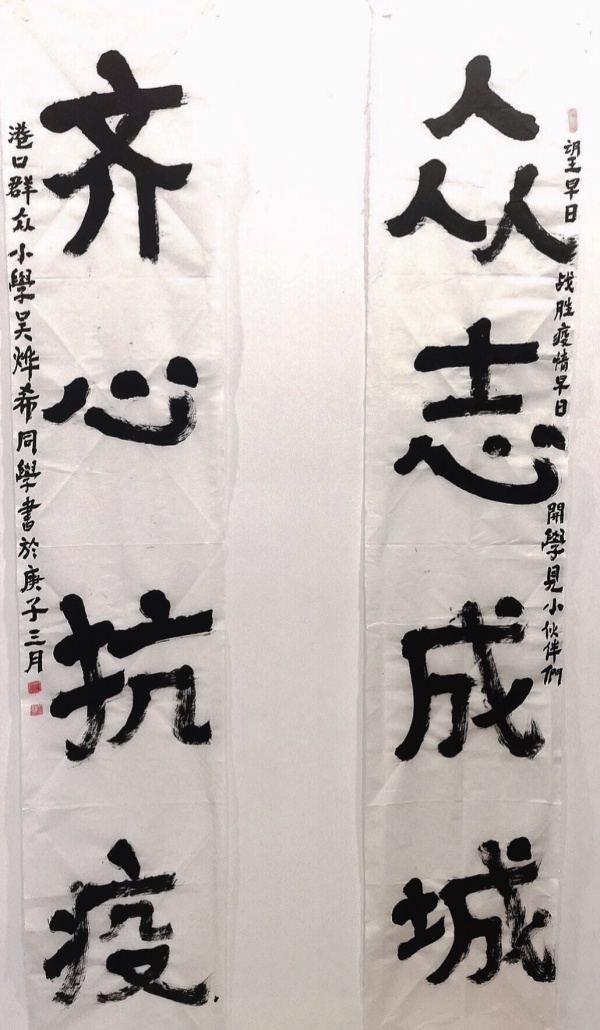 望早日战胜疫情早日開學見小伙伴們
众志成城
齐心抗疫
港口群众小學吴烨希同學書於庚子三月